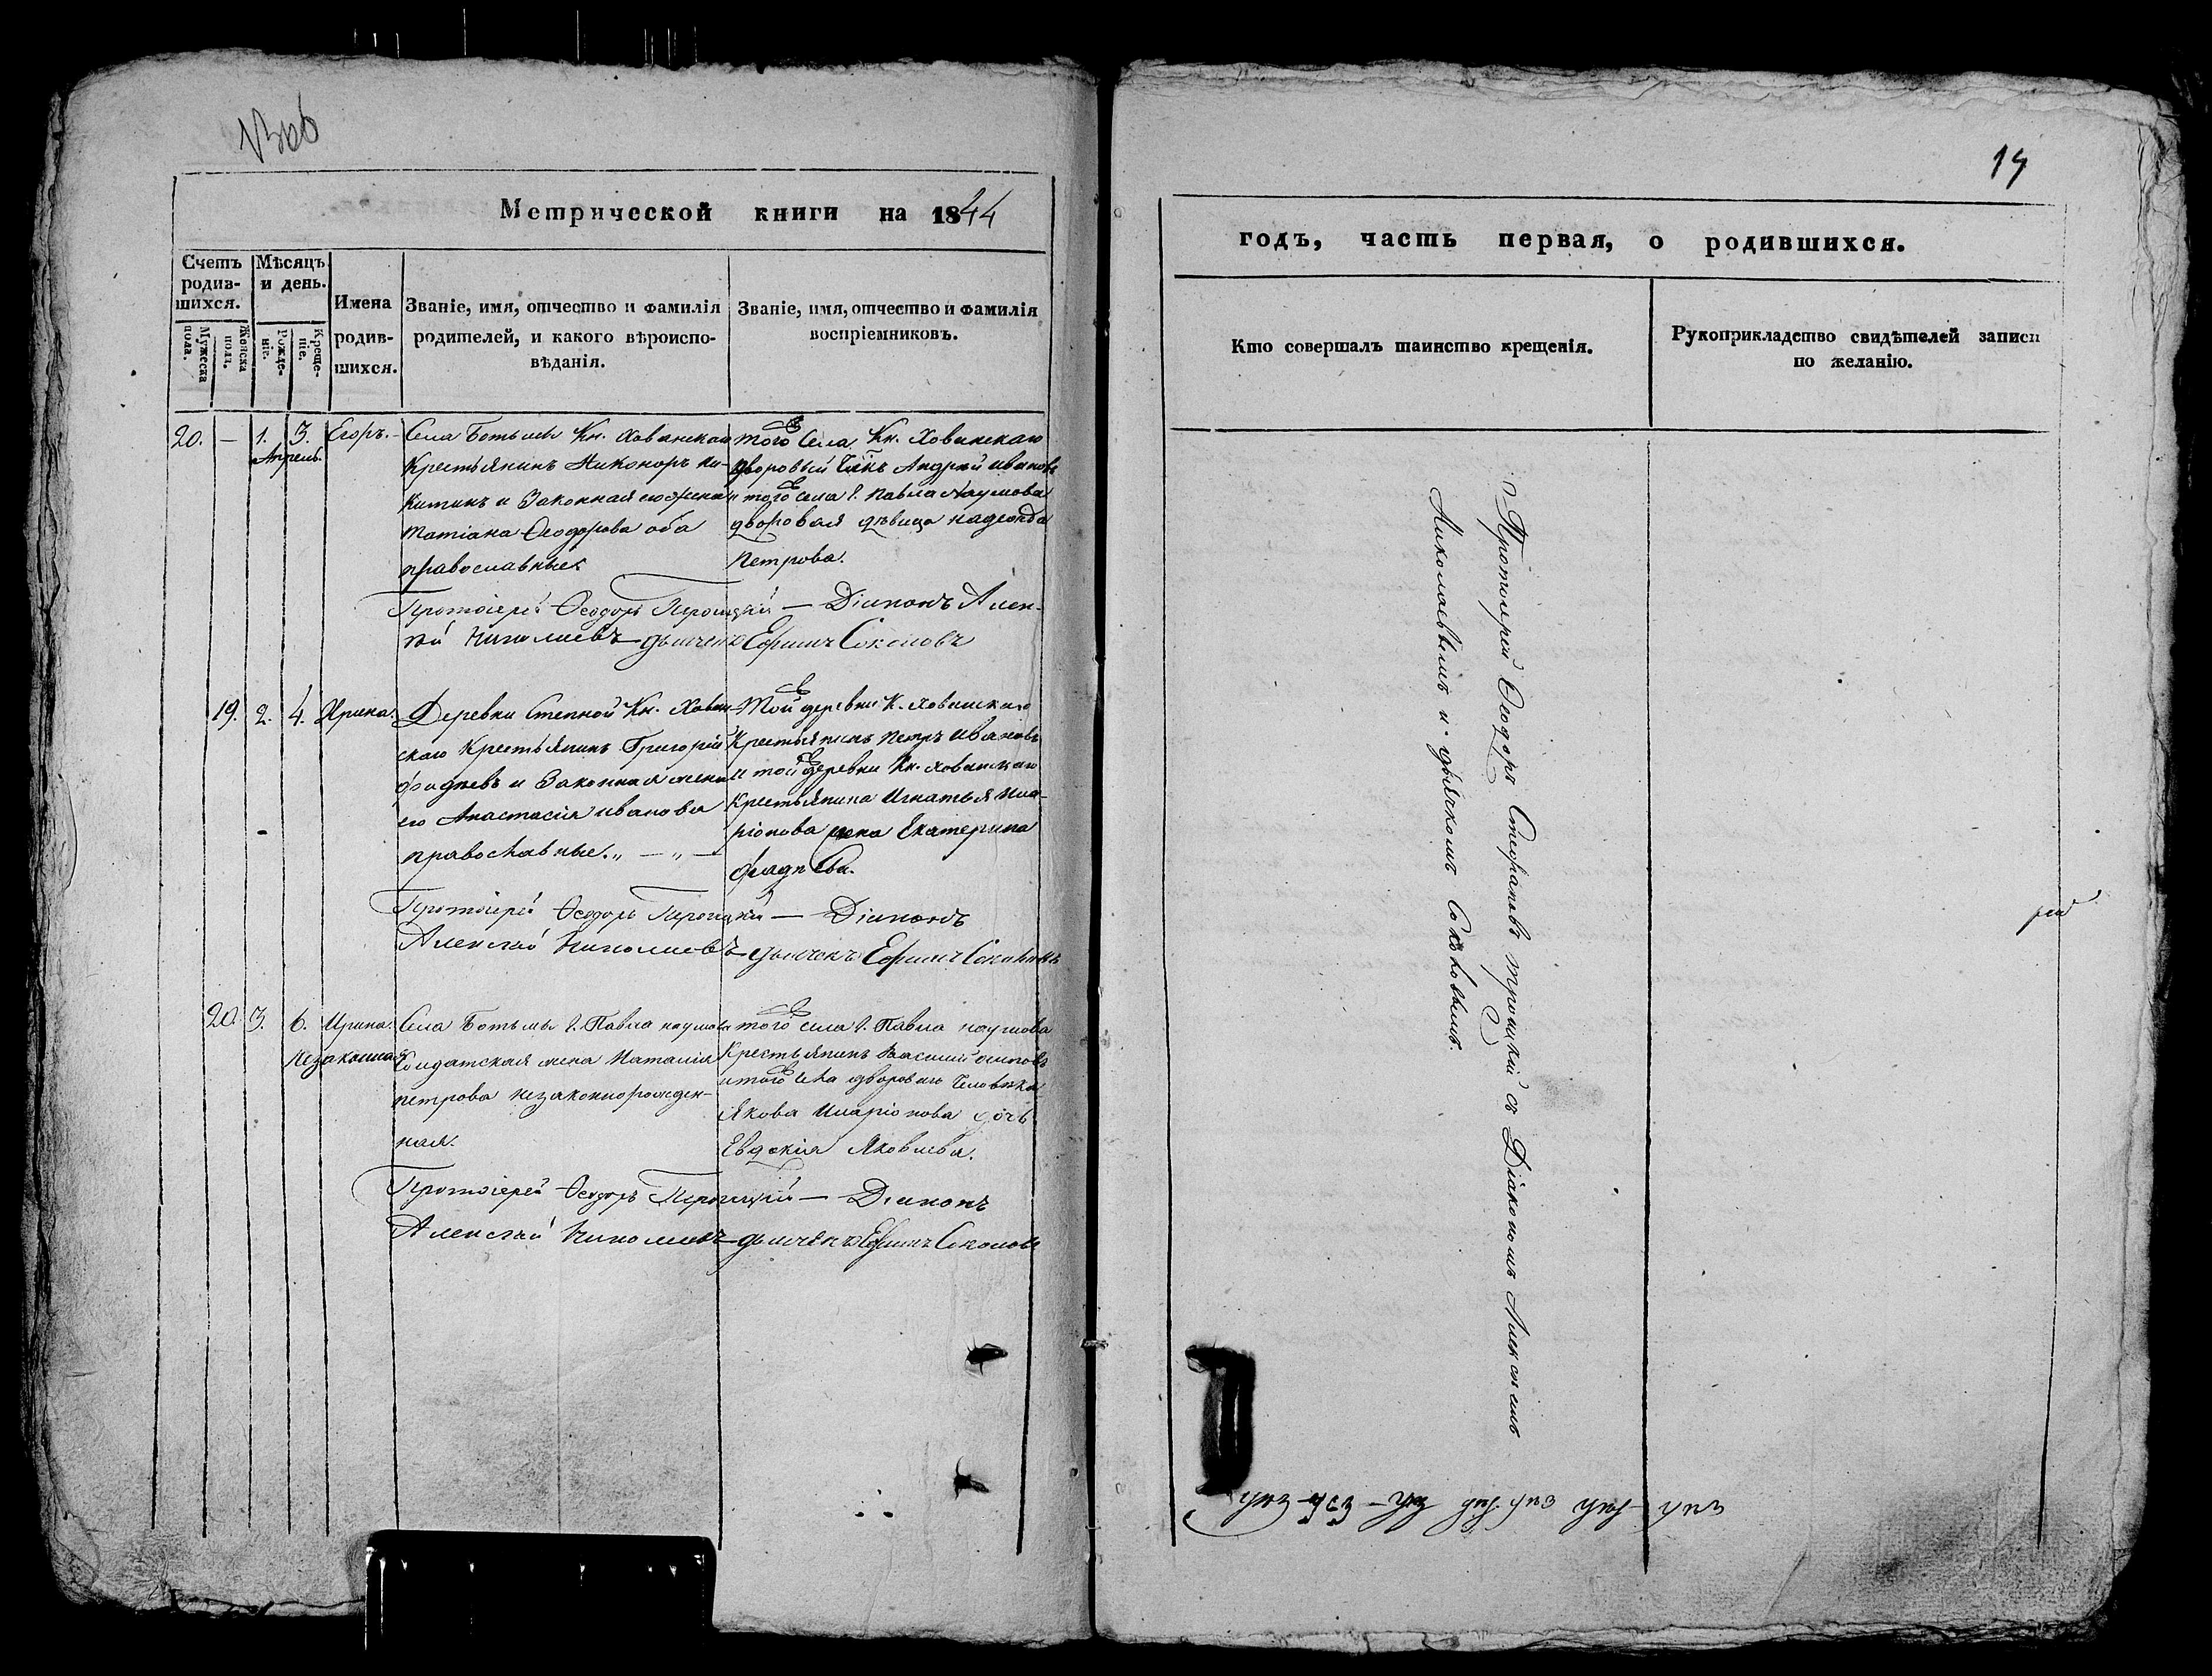 19
Метрической книги на 1844
годъ, часть первая, о родившихся.
Счетъ родив-шихся.
Мужеска пола.
Женска пола.
Мѣсяцъ и день.
Рожде-ніе.
Креще-ніе.
Имена родив-шихся.
Званіе, имя, отчество и фамилія
родителей, и какого вѣроиспо-
вѣданія.
Званіе, имя, отчество и фамилія
воспріемниковъ.
Кто совершалъ таинство крещенія.
Рукоприкладство свидѣтелей записи
по желанію.
20. — 1. 3. Егоръ.
Апрель.
Села Ботьмы Кн. Хованскаго
Крестьянинъ Никоноръ Ни-
китинъ и Законная его жена
Татіана Ѳеодорова оба
православные
того Села Кн. Хованскаго
дворовый Андрей Ивановъ
и того села г. Павла Наумова
дворовая дѣвица Надежда
Петрова.
Протоіерей Ѳеодоръ Троицкій — Діаконъ Алек-
сѣй Николаевъ дьячекъ Ефимъ Соколовъ
19. 2. 4. Ирина.
Деревни Степной Кн. Хован-
скаго Крестьянинъ Григорій
Фадѣевъ и Законная жена
его Анастасія Иванова
православные. „ — „ —
Той деревни К. Хованскаго
Крестьянинъ Петръ Ивановъ
и той деревни Кн. Хованскаго
Крестьянина Игнатья Ила-
ріонова жена Екатерина
Фадѣева.
Протоіерей Ѳеодоръ Троицкій — Діаконъ
Алексѣй Николаевъ дьячекъ Ефимъ Соколовъ
20. 3. 6. Ирина.
незаконная
Села Ботьмы г. Павла Наумова
Солдатская жена Наталія
Петрова незаконнорожден-
ная.
того села г. Павла Наумова
Крестьянинъ Василій Осиповъ
и того села дворов. Человѣка
Якова Иларіонова дочь
Евдокія Яковлева.
Протоіерей Ѳеодоръ Троицкій — Діаконъ
Алексѣй Николаевъ дьячекъ Ефимъ Соколовъ
Протоіерей Ѳеодоръ Стефановъ Троицкій съ Діакономъ Алексѣемъ
Николаевымъ и дьячкомъ Соколовымъ.